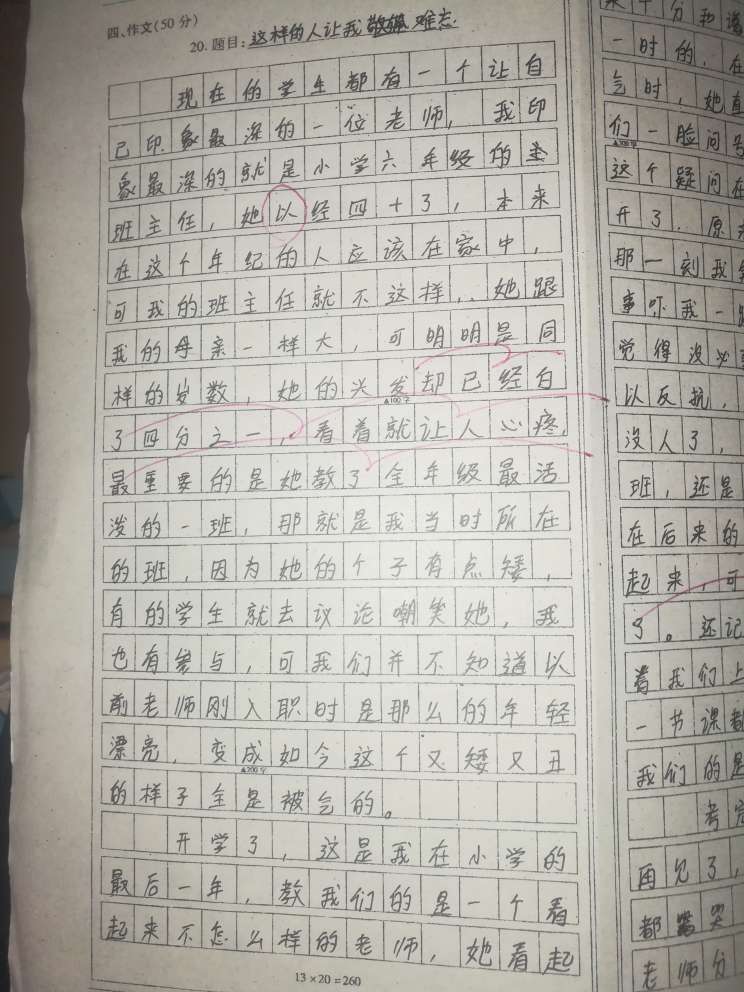 四、作文(50分)
20. 题目:这样的人让我难忘.
现在的学生都有一个让自
己印象最深的一位老师,我印
象最深的就是小学六年级的
班主任,她以经四十了,本来
在这个年纪的人应该在家中,
可我的班主任就不这样,她跟
我的母亲一样大,可明明是同
样的岁数,她的头发却已经白
▲100字
了四分之一,看着就让人心疼,
最重要的是她教了全年级最活
泼的一班,那就是我当时所在
的班,因为她的个子有点矮,
有的学生就去议论嘲笑她,我
也有参与,可我们并不知道以
前老师刚入职时是那么的年轻
漂亮,变成如今这个又矮又丑
▲200字
的样子全是被气的。
开学了,这是我在小学的
最后一年,教我们的是一个看
起来不怎么样的老师,她看起
13×20=260
来十分和
一时的,在
气时,她直
们一脸问号
▲300字
这个疑问在
开了.原来
那一刻我
事吓我一
觉得没必
以反抗,
没人了,
班,还是
在后来的
起来,可
了。还记
着我们上
一节课都
我们的是
考完
再见了,
都哭
老师分